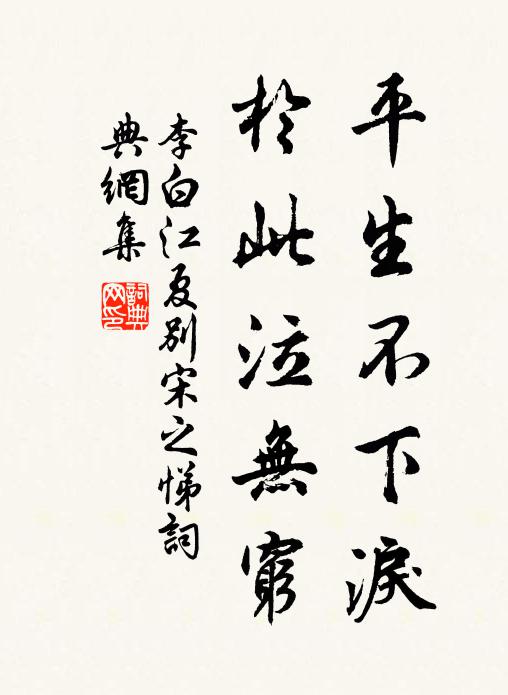 平生不下淚
於此泣無窮
李白江夏別宋之悌詞
典網集
詞典网印